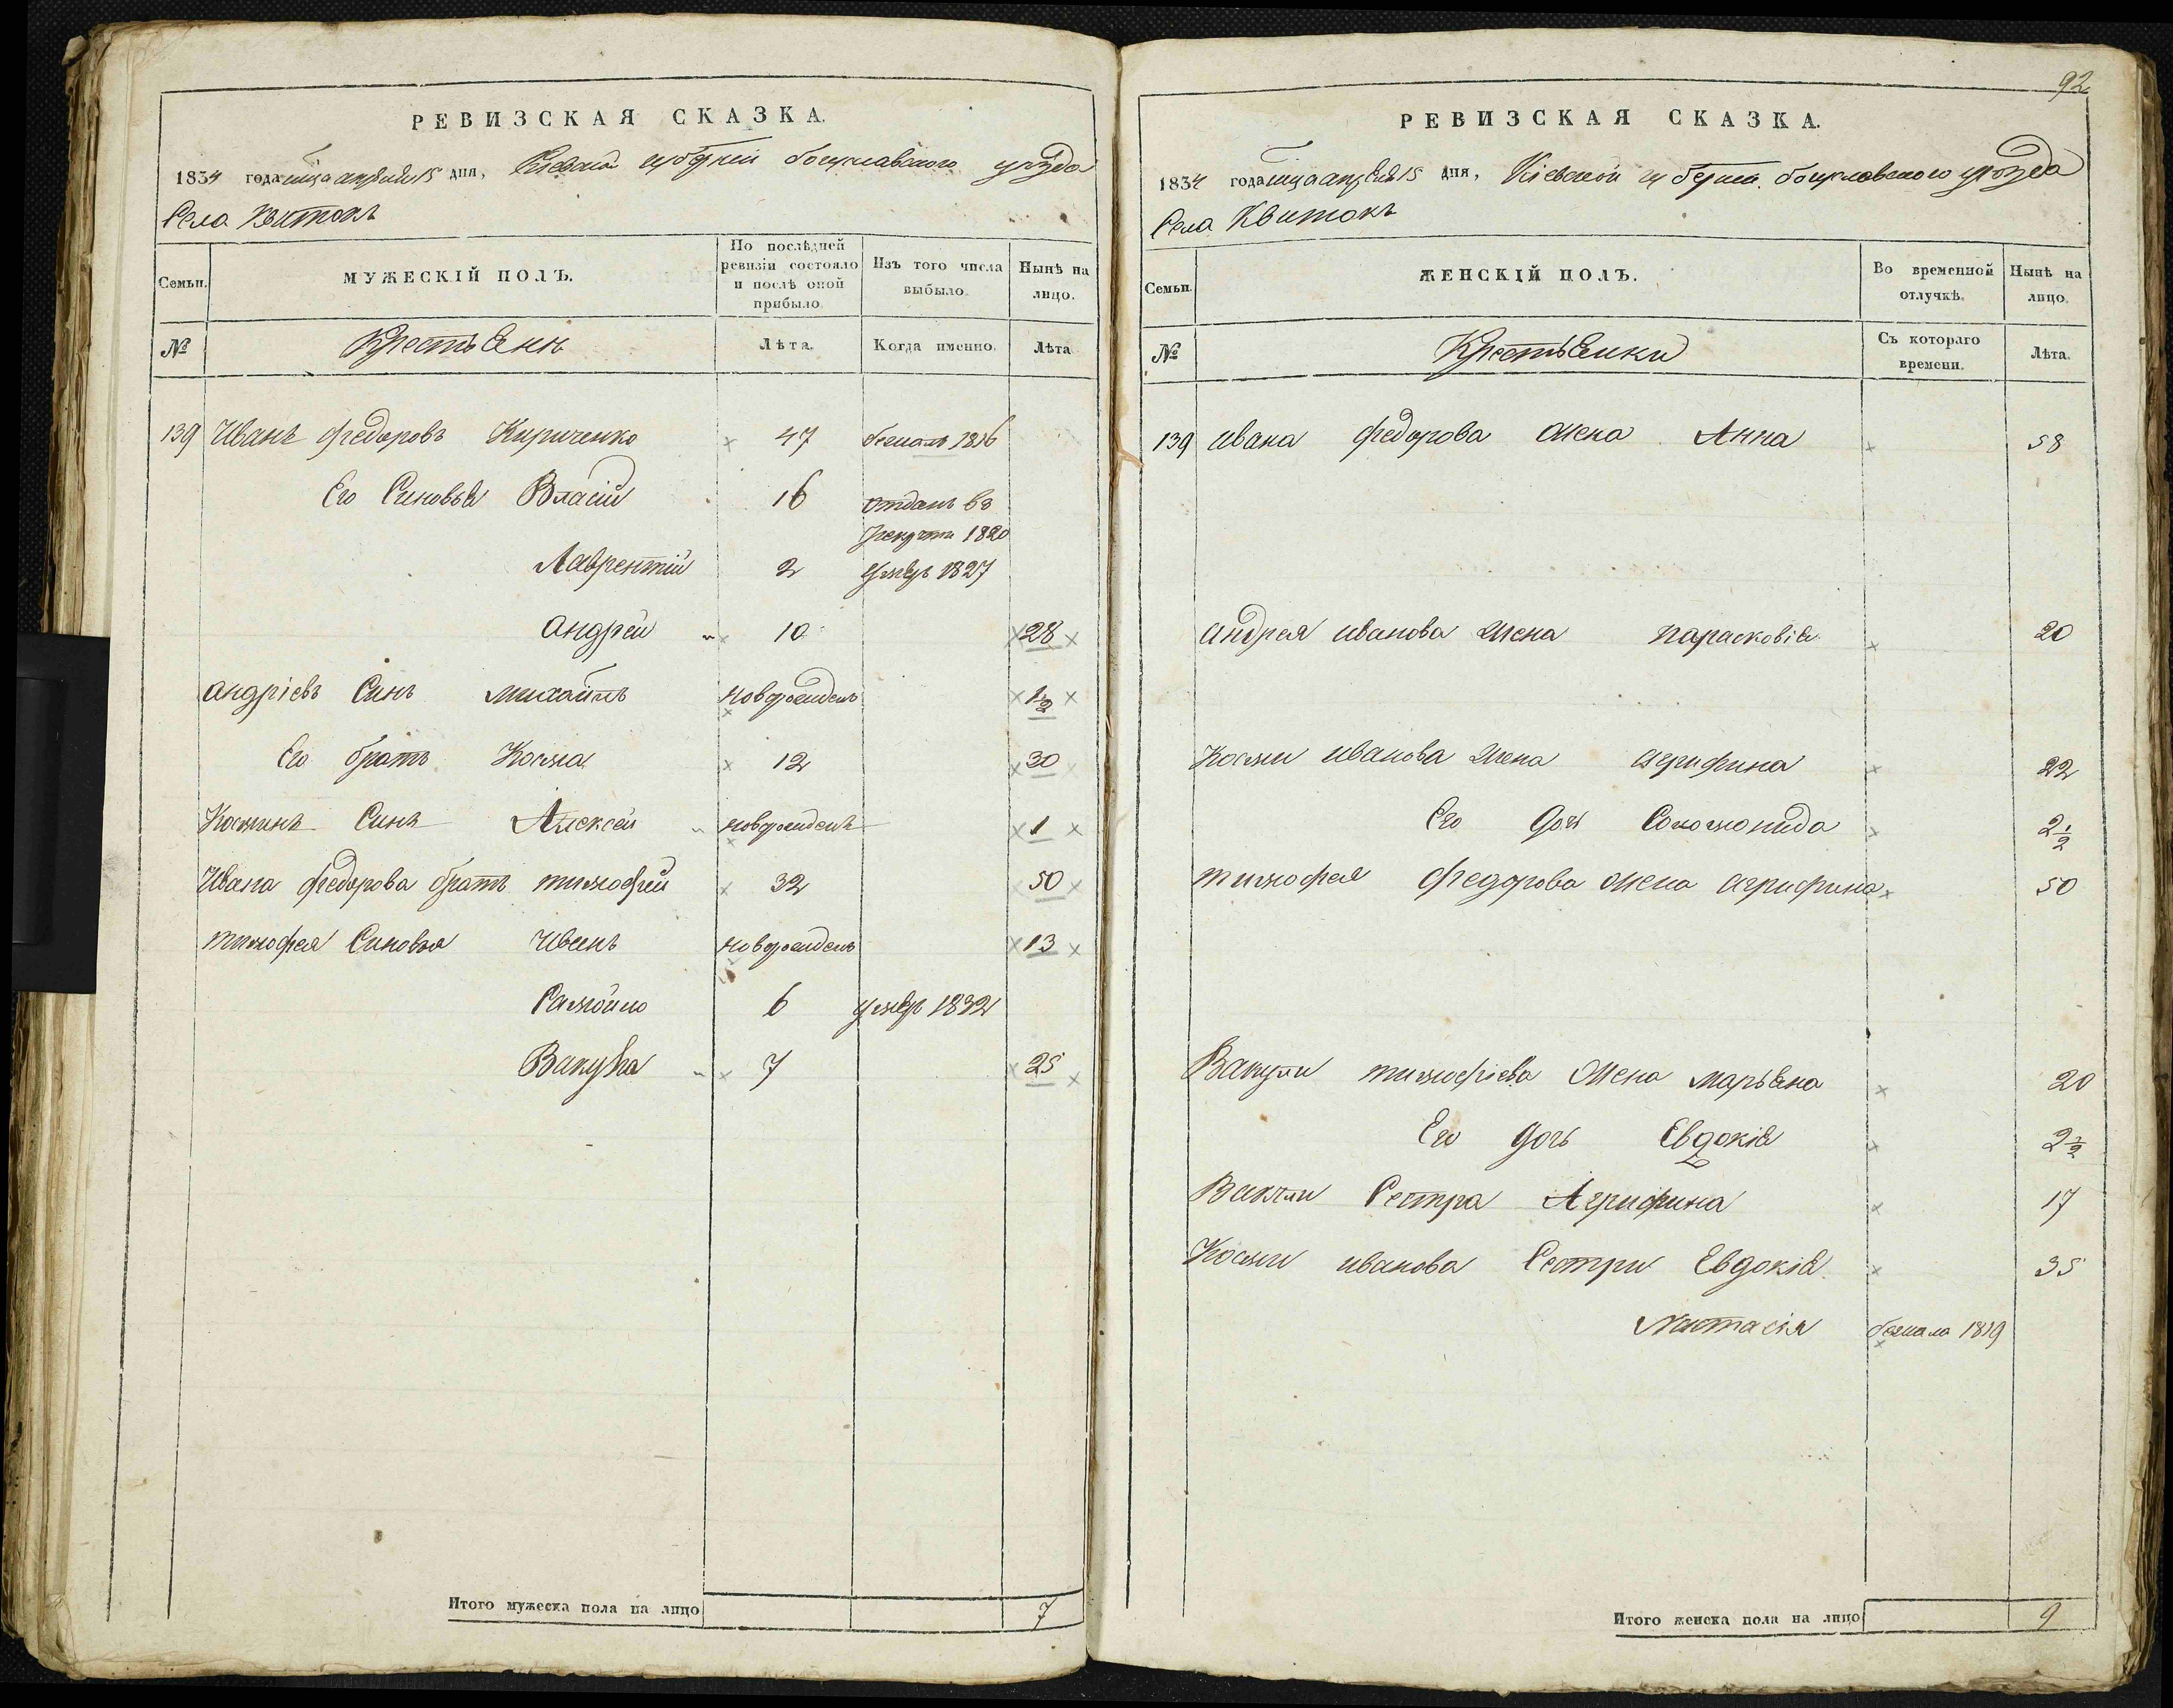 РЕВИЗСКАЯ СКАЗКА.
1834 года мца апреля 15 дня, Кіевской губернии богуславского уезда
Села Квитокъ
Семьи.
МУЖЕСКІЙ ПОЛЪ.
По послѣдней ревизіи состояло и послѣ оной прибыло.
Изъ того числа выбыло.
Нынѣ на лицо.
№
Крестьяне
Лѣта.
Когда именно.
Лѣта
139 Иванъ федоровъ Кириченко 47 бежалъ 1816
Его Синовья Власій 16 отданъ въ рекрути 1820
Лаврентій 2 умеръ 1827
андрей 10 28
андріевъ Синъ михайлъ новорожденъ 1 1/2
Его братъ Косма 12 30
Косминъ Синъ Алексей новорожденъ 1
Ивана федорова братъ тимофей 32 50
тимофея Синовья Иванъ новорожденъ 13
Самойло 6 умеръ 1832
Вакула 7 25
Итого мужеска пола на лицо 7
92
РЕВИЗСКАЯ СКАЗКА.
1834 года мца апреля 15 дня, Кіевской губерни. богуславского уезда
Села Квитокъ
Семьи.
ЖЕНСКІЙ ПОЛЪ.
Во временной отлучкѣ.
Нынѣ на лицо.
№
Крестьянки
Съ котораго времени.
Лѣта.
139 Ивана федорова жена Анна 58
андрея иванова жена парасковія 20
Косми иванова жена агрифина 22
Его дочь Соломонида 2 1/2
тимофея федорова жена агрифина 50
Вакули тимофіева жена марьяна 20
Его дочь Евдокія 2 1/2
Вакули Сестра Агрифина 17
Косми иванова Сестри Евдокія 35
Настасія бежала 1819
Итого женска пола на лицо 9